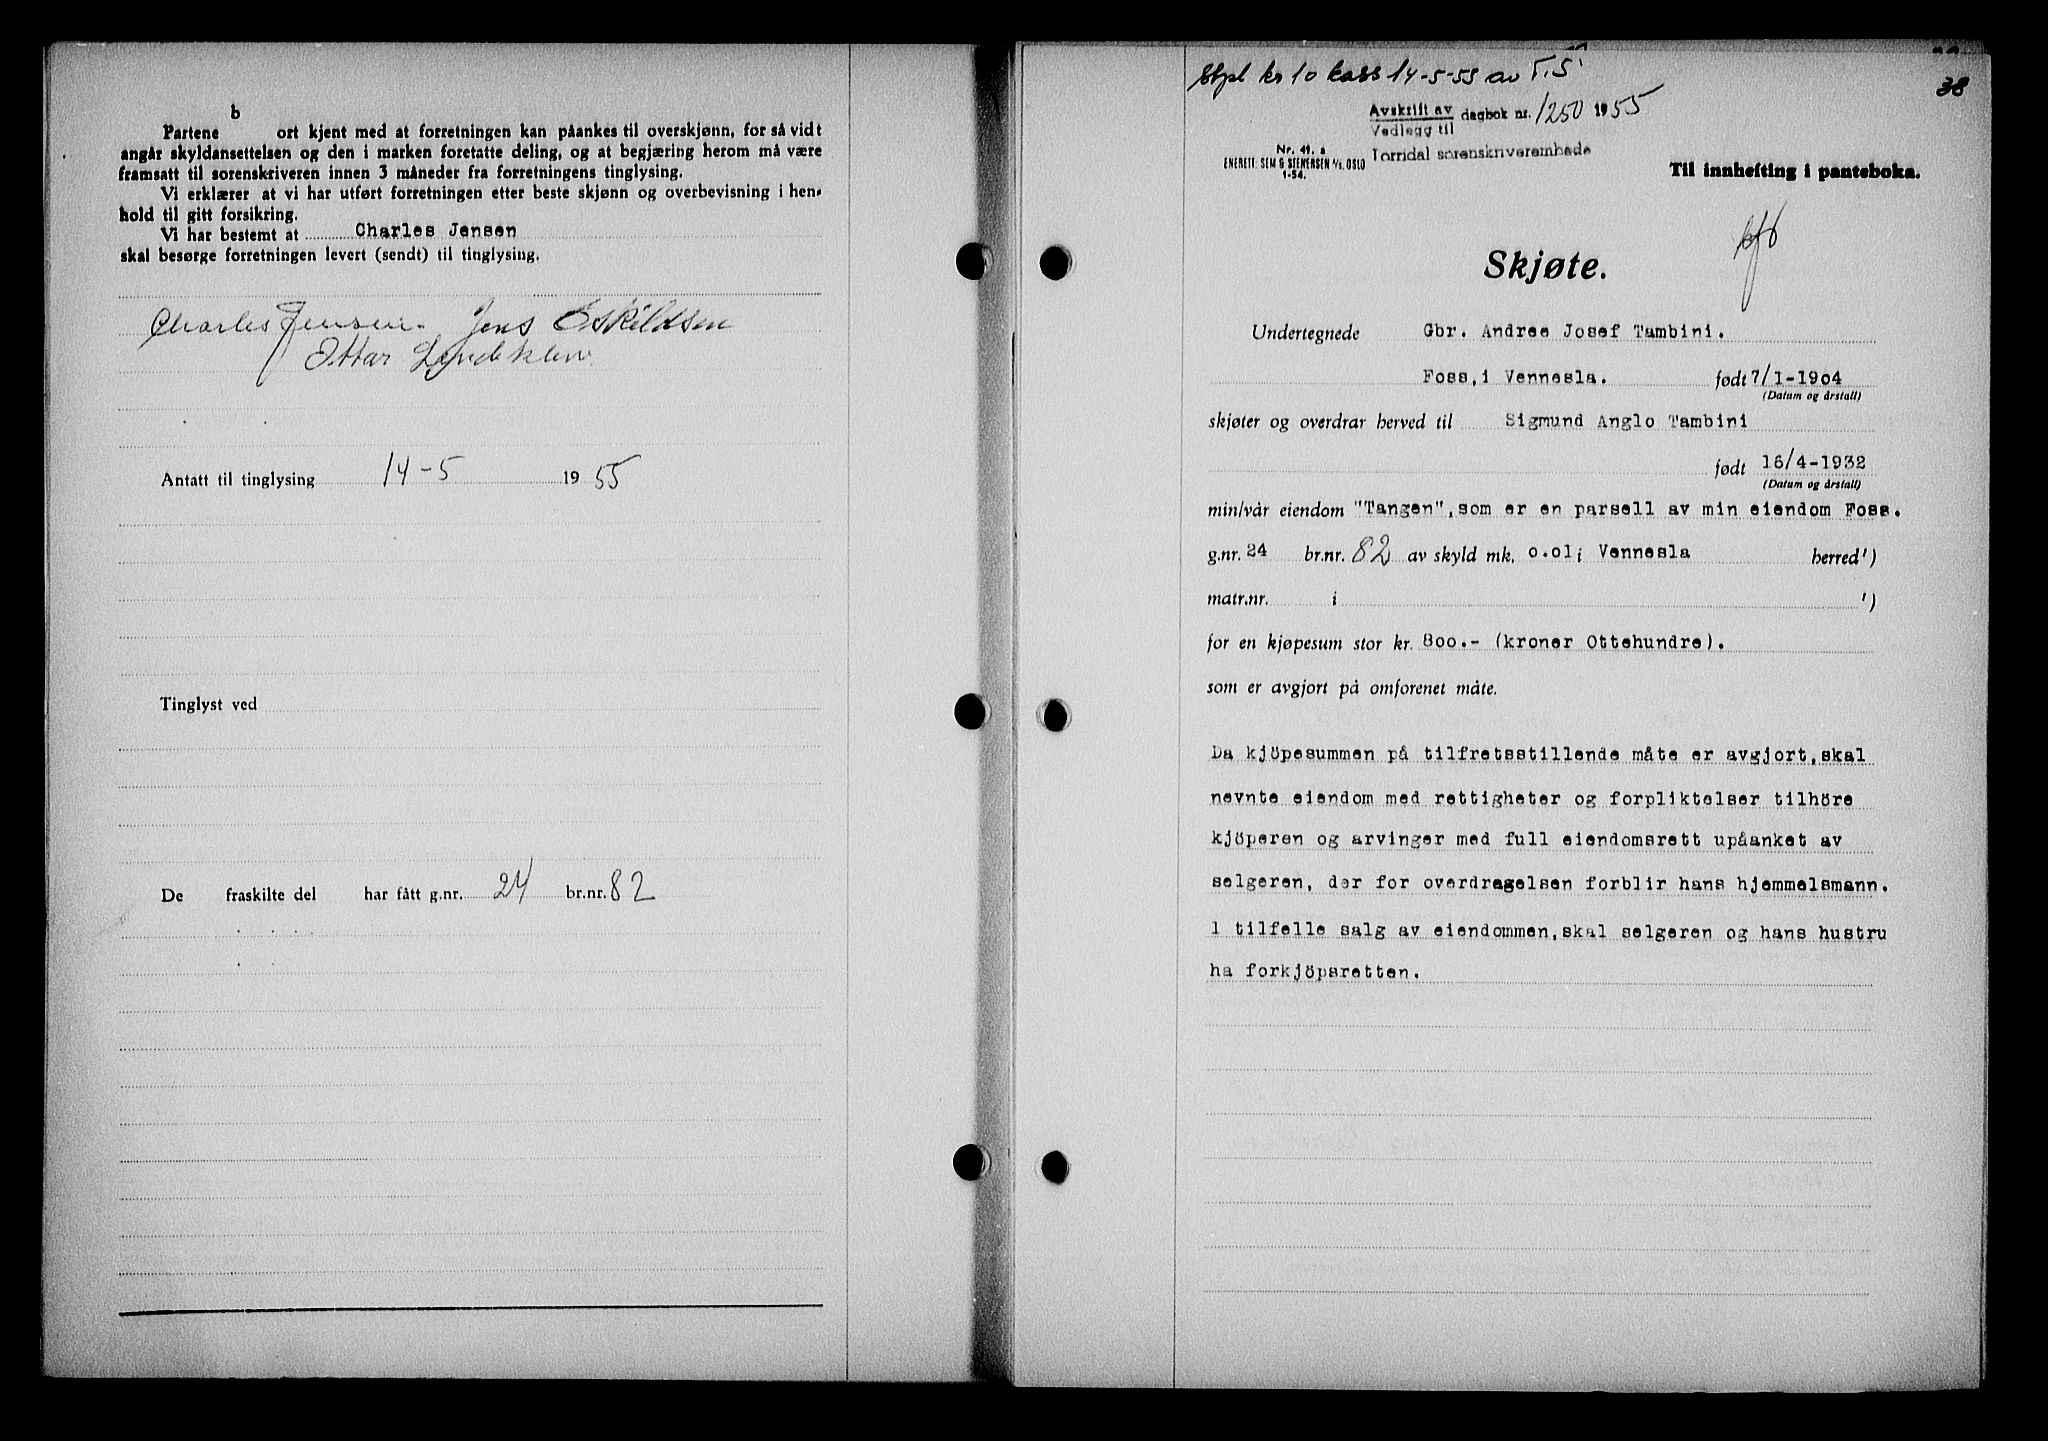 b
Partene ort kjent med at forretningen kan påankes til overskjønn, for så vidt
angår skyldansettelsen og den i marken foretatte deling, og at begjæring herom må være
framsatt til sorenskriveren innen 3 måneder fra forretningens tinglysing.
Vi erklærer at vi har utført forretningen etter beste skjønn og overbevisning i hen-
hold til gitt forsikring.
Vi har bestemt at Charles Jensen
skal besørge forretningen levert (sendt) til tinglysing.
Charles Jensen. Jens Eskildsen
Ottar
Antatt til tinglysing 14-5 1955
Tinglyst ved
De fraskilte del har fått g.nr. 24 br.nr. 82
38
Stpl kr 10 kass 14-5-55 av T.S.
Avskrift av
Vedlegg til dagbok nr. 1250 1955
Torridal sorenskriverembede
Nr. 41. a
ENERETT: SEM & STENERSEN A/S. OSLO
1-54.
Til innhefting i panteboka.
Skjøte.
Undertegnede Gbr. Andree Josef Tambini.
Foss, i Vennesla. født 7/1-1904
(Datum og årstall)
skjøter og overdrar herved til Sigmund Anglo Tambini
født 16/4-1932
(Datum og årstall)
min/vår eiendom "Tangen", som er en parsell av min eiendom Foss.
g.nr. 24 br.nr. 82 av skyld mk. 0.01 i Vennesla herred')
matr.nr. i ')
for en kjøpesum stor kr. 800.- (kroner Ottehundre).
som er avgjort på omforenet måte.
Da kjöpesummen på tilfretsstillende måte er avgjort, skal
nevnte eiendom med rettigheter og forpliktelser tilhöre
kjöperen og arvinger med full eiendomsrett upåanket av
selgeren, der for overdragelsen forblir hans hjemmelsmann.
I tilfelle salg av eiendommen, skal selgeren og hans hustru
ha forkjöpsretten.